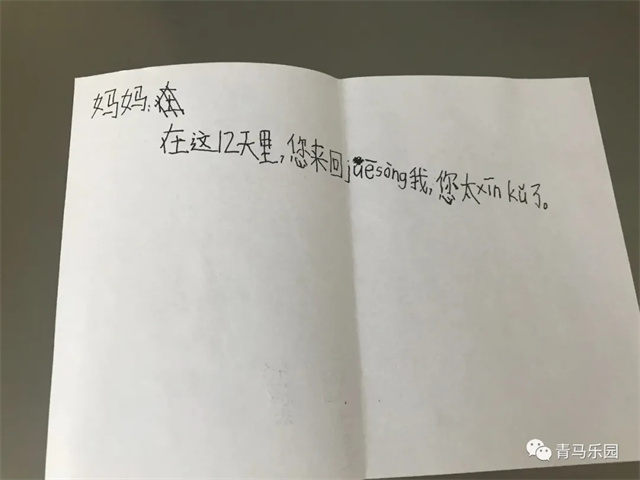 妈妈:
在这12天里,您来回juēsòng我,您太xīn kǔ了。
青马乐园